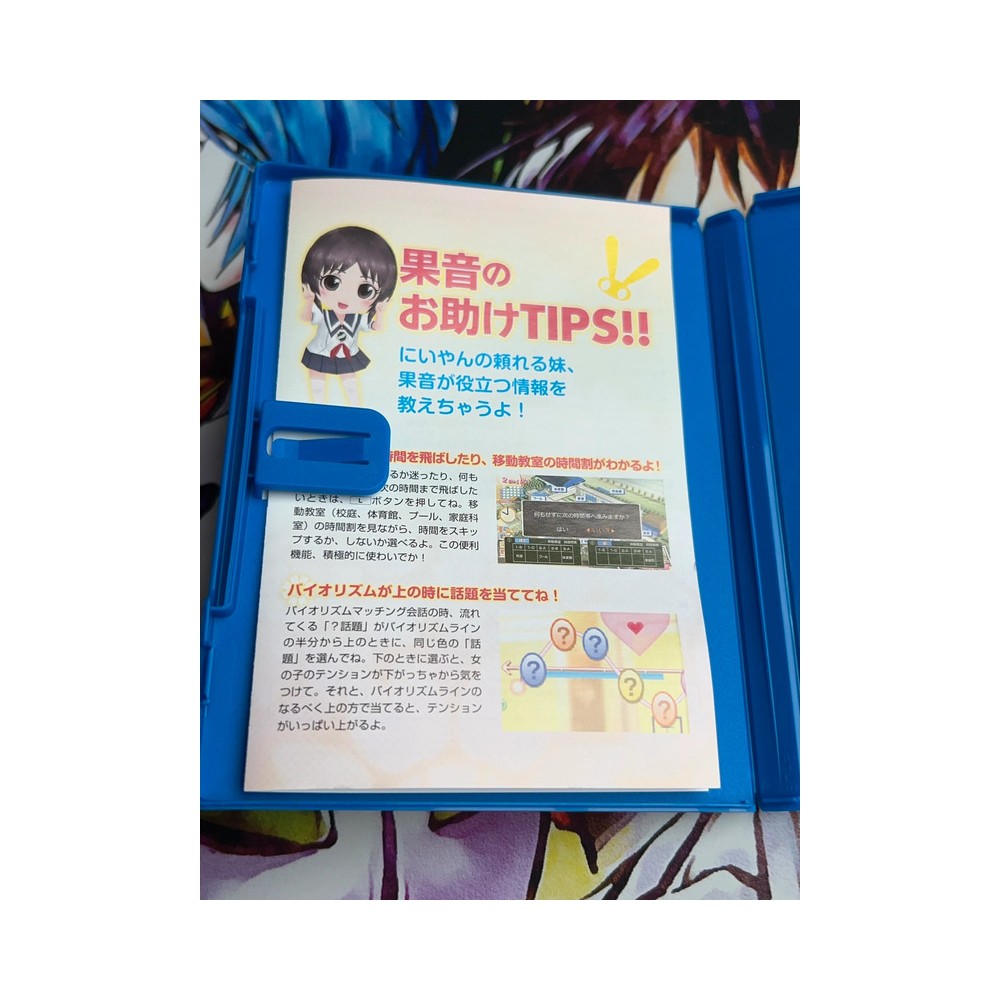 果音の
お助けTIPS!!
にいやんの頼れる妹、
果音が役立つ情報を
教えちゃうよ！
時間を飛ばしたり、移動教室の時間割がわかるよ！
るか迷ったり、何も
次の時間まで飛ばした
いときは、 L ボタンを押してね。移
動教室（校庭、体育館、プール、家庭科
室）の時間割を見ながら、時間をスキッ
プするか、しないか選べるよ。この便利
機能、積極的に使わいでか！
何もせずに次の時間帯へ進みますか？
はい いいえ
バイオリズムが上の時に話題を当ててね！
バイオリズムマッチング会話の時、流れ
てくる「？話題」がバイオリズムライン
の半分から上のときに、同じ色の「話
題」を選んでね。下のときに選ぶと、女
の子のテンションが下がっちゃから気を
つけて。それと、バイオリズムラインの
なるべく上の方で当てると、テンション
がいっぱい上がるよ。
? ?
?
?
?